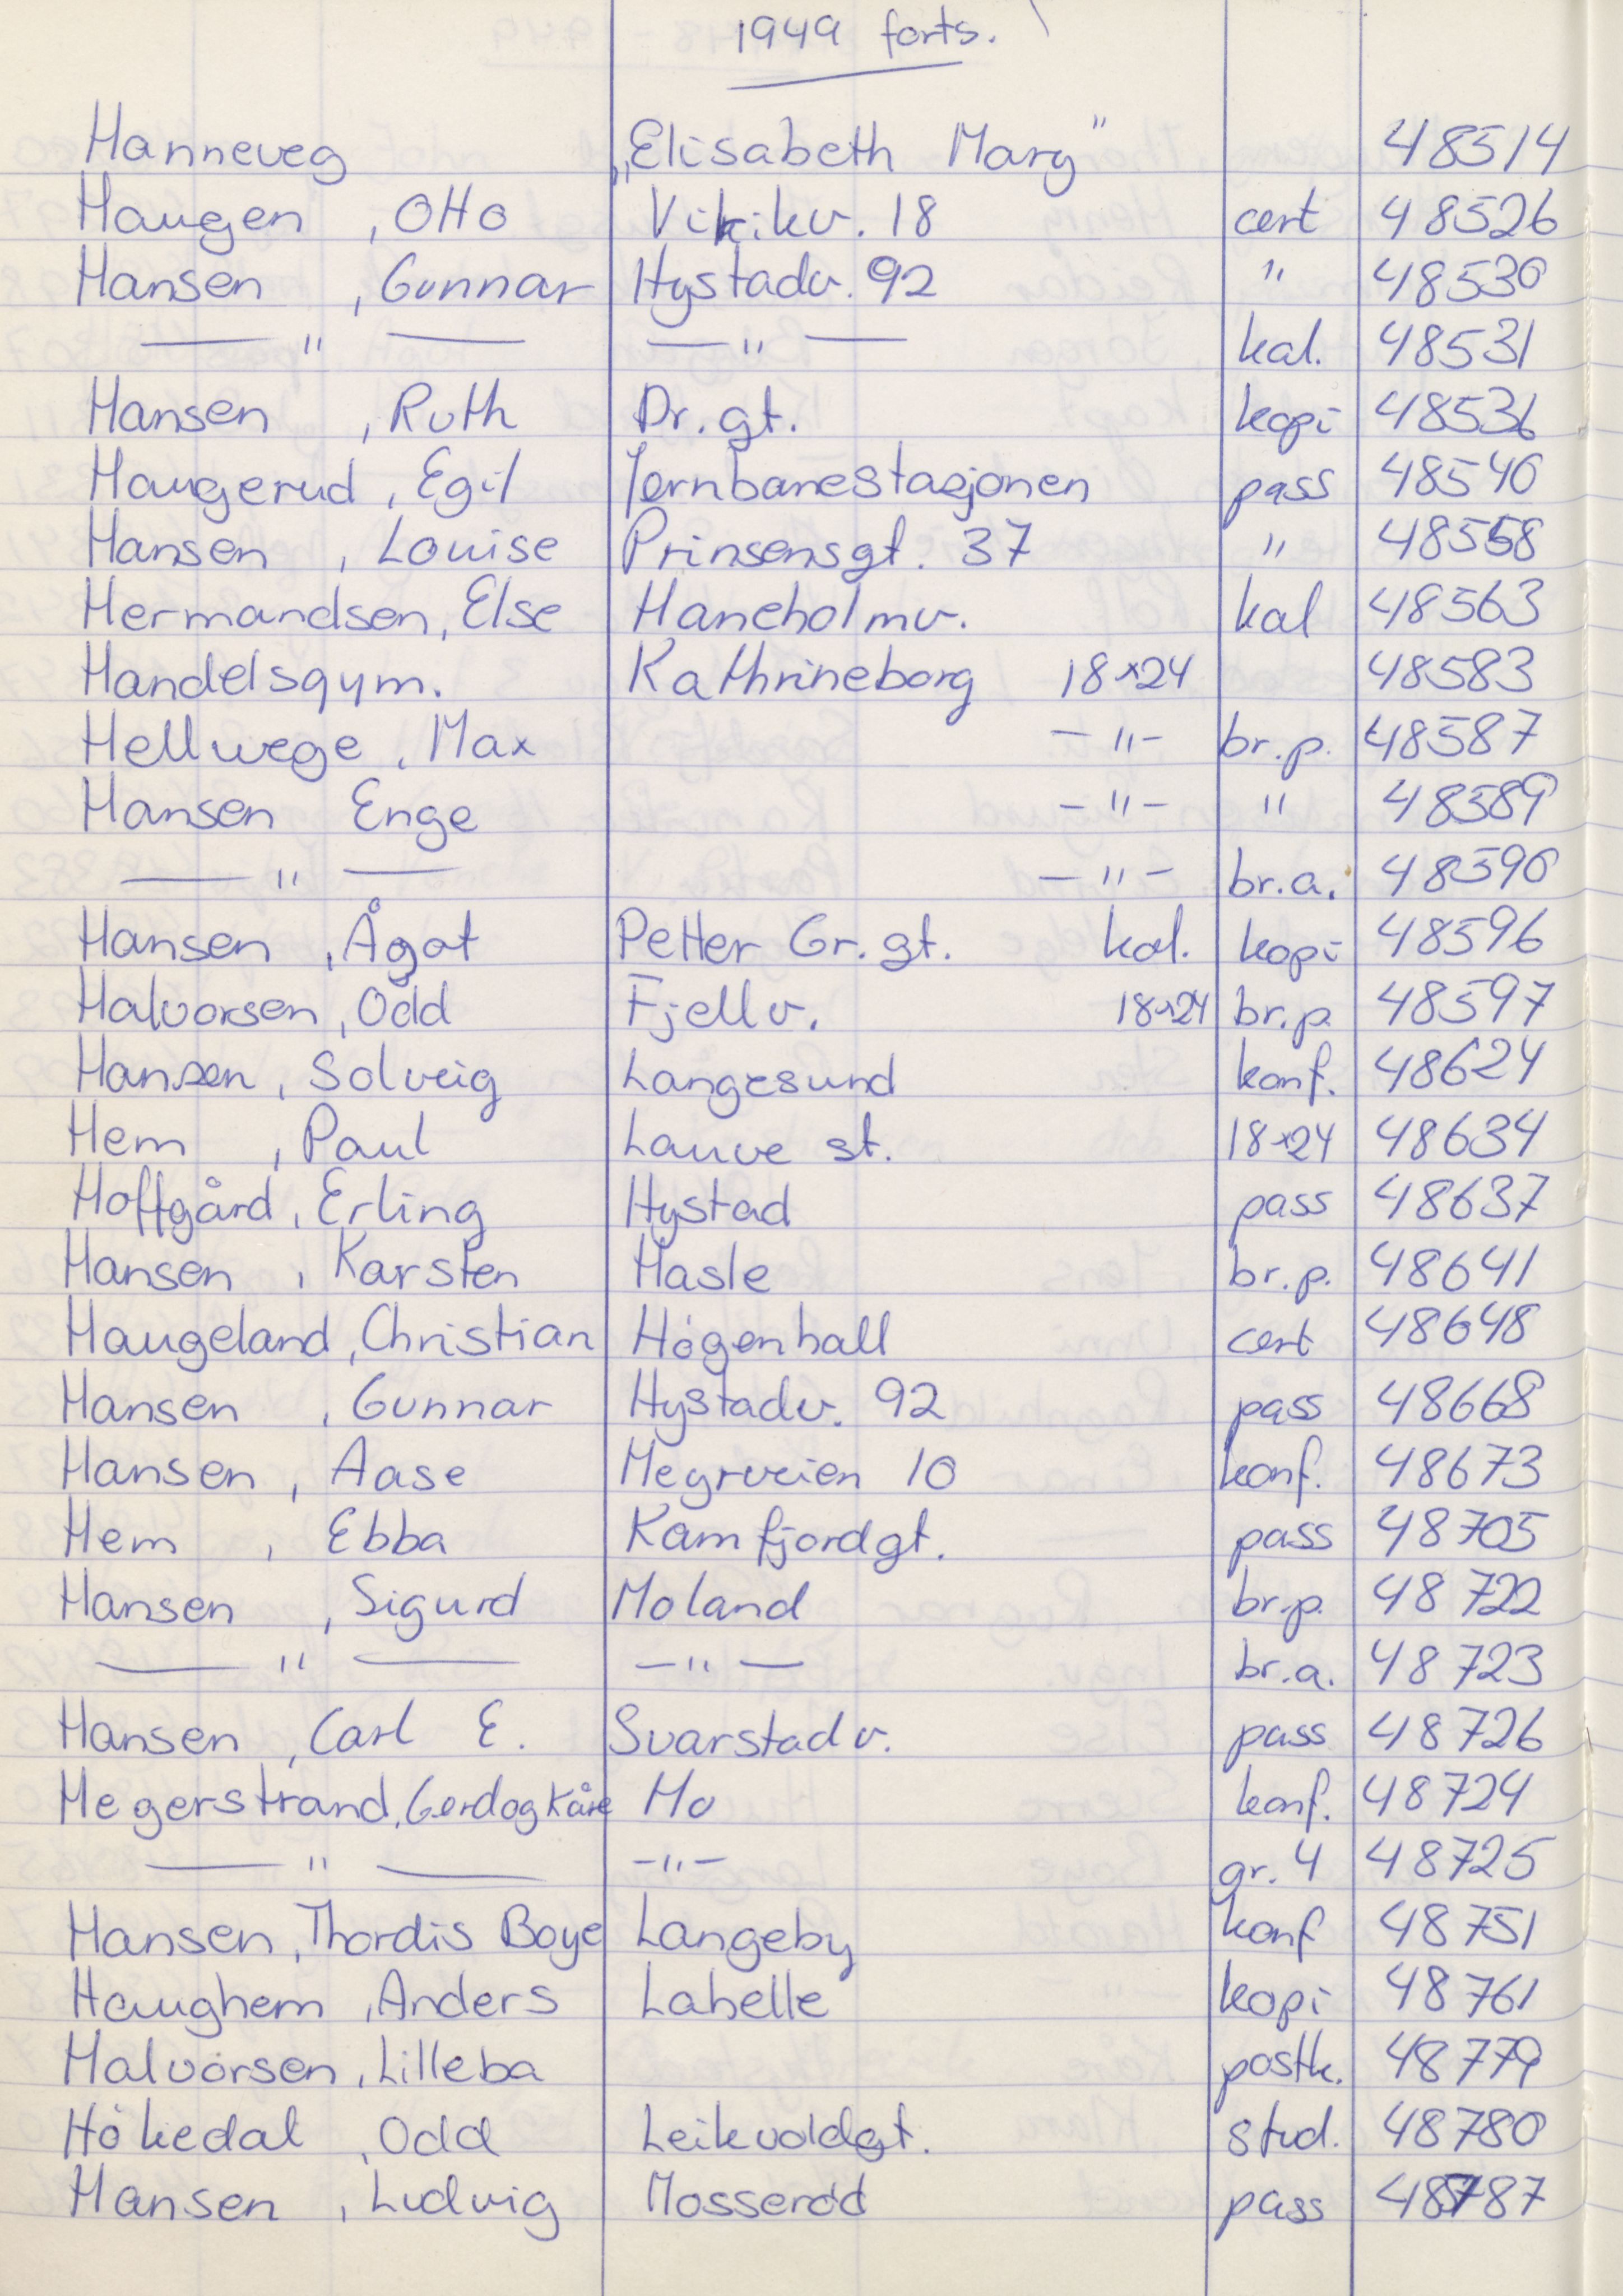 1949 forts.
Hanneveg „Elisabeth Mary" 48514
Haugen , Otto Vikikv. 18 cert 48526
Hansen , Gunnar Hystadv. 92 " 48530
— " — — " — kal. 48531
Hansen , Ruth Dr. gt. kopi 48536
Haugerud , Egil Jernbanestasjonen pass 48540
Hansen , Louise Prinsensgt. 37 " 48558
Hermandsen, Else Haneholmv. kal 48563
Handelsgym. Kathrineborg 18x24 48583
Hellwege , Max — " — br.p. 48587
Hansen Enge — " — " 48589
— " — — " — br.a. 48590
Hansen , Ågot Petter Gr. gt. kal. kopi 48596
Halvorsen , Odd Fjellv. 18x24 br.p. 48597
Hansen , Solveig Langesund konf. 48624
Hem , Paul Lauve st. 18x24 48634
Hoffgård , Erling Hystad pass 48637
Hansen , Karsten Hasle br.p. 48641
Haugeland , Christian Högenhall cert 48648
Hansen , Gunnar Hystadv. 92 pass 48668
Hansen , Aase Hegrveien 10 konf. 48673
Hem , Ebba Kamfjordgt. pass 48705
Hansen , Sigurd Moland br.p. 48722
— " — — " — br.a. 48723
Hansen , Carl E. Svarstadv. pass 48726
Hegerstrand, Gerd og Kåre Mo konf. 48724
— " — — " — gr. 4 48725
Hansen , Thordis Boye Langeby konf 48751
Haughem , Anders Labelle kopi 48761
Halvorsen , Lilleba postk. 48779
Hökedal , Odd Leikvoldgt. stud. 48780
Hansen , Ludvig Mosseröd pass 48787